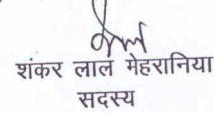 शंकर लाल मेहरानिया
सदस्य